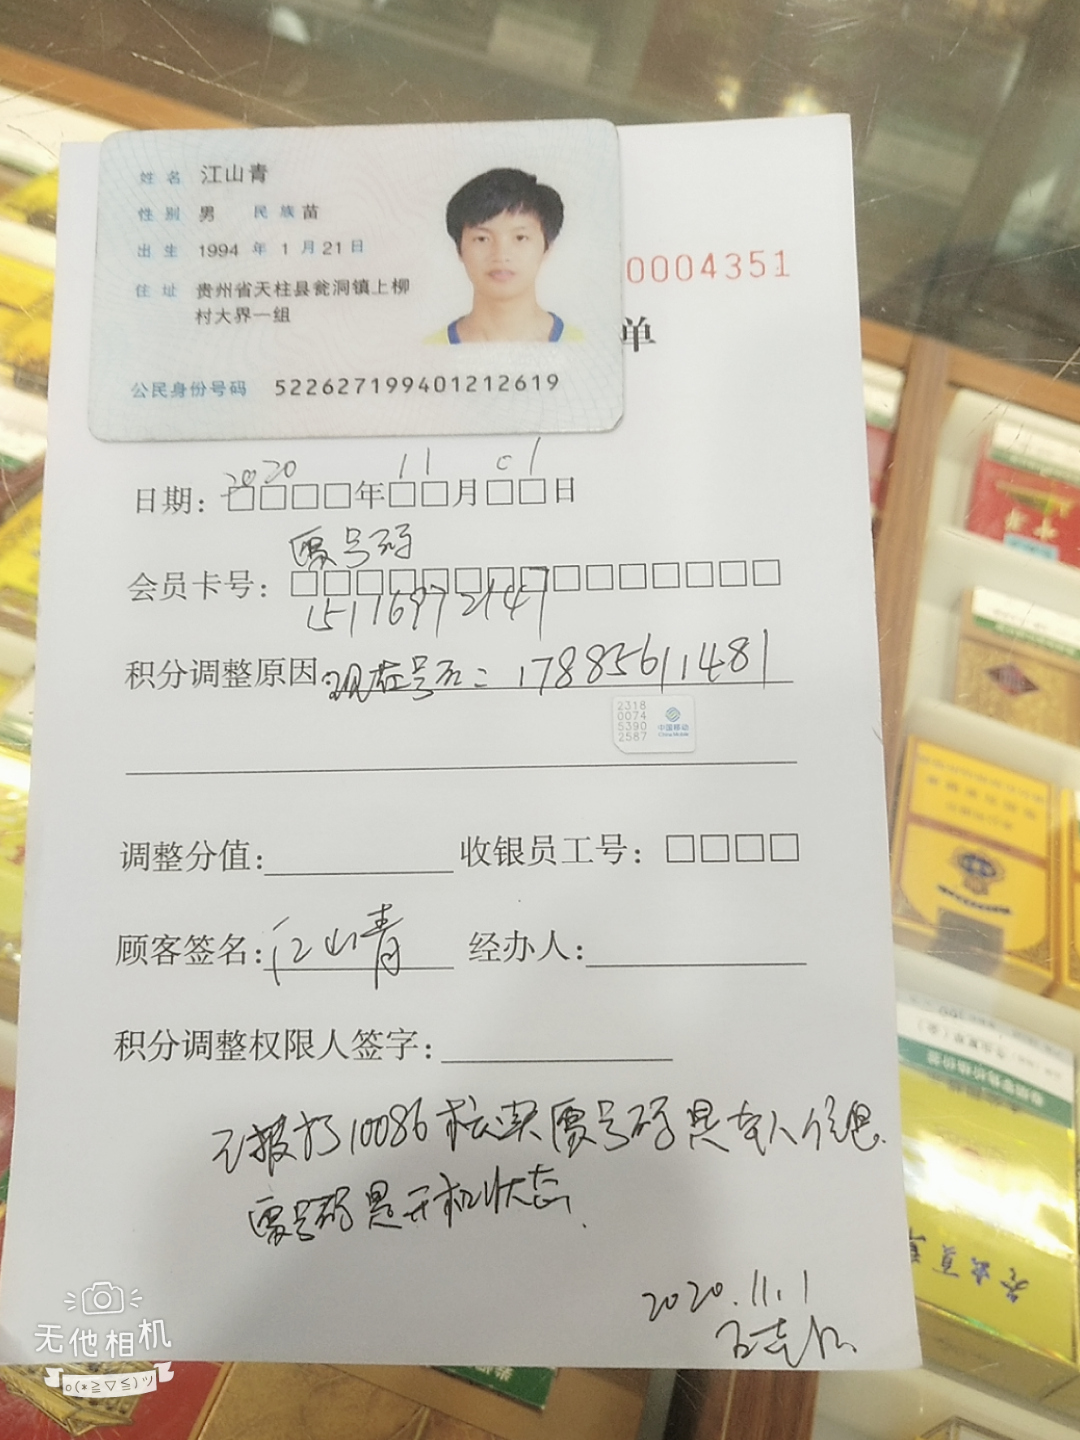 姓名 江山青
性别 男 民族 苗
出生 1994 年 1 月 21 日
住址 贵州省天柱县瓮洞镇上柳
村大界一组
公民身份号码 522627199401212619
0004351
单
日期: 2020年11月01日
原号码
会员卡号:
15116972147
积分调整原因 现在号码: 17885611481
2318
0074
5390
2587
中国移动
China Mobile
调整分值: 收银员工号:
顾客签名: 江山青 经办人:
积分调整权限人签字:
已拨打10086核实原号码是本人信息.
原号码是开机状态.
2020.11.1
无他相机
o(*≧▽≦)ツ